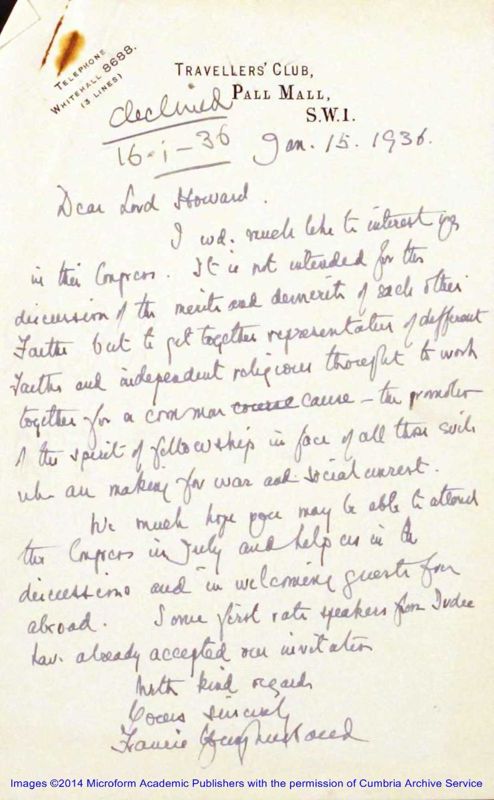 TELEPHONE
WHITEHALL 8688.
(3 LINES)
TRAVELLERS' CLUB,
PALL MALL,
S.W.1.
declined
16-1-36
Jan. 15. 1936.
Dear Lord Howard.
I wd. much like to interest you
in this Congress. It is not intended for the
discussion of the merits and demerits of each others
Faiths but to get together representatives of different
Faiths and independent religious thought to work
together for a common course cause – the promotion
of the spirit of fellowship in face of all those evils
wh. are making for war and social unrest.
We much hope you may be able to attend
the Congress in July and help us in the
discussions and in welcoming guests from
abroad. Some first rate speakers from India
have already accepted our invitation
With kind regards
Yours sincerely
Francis Younghusband
Images ©2014 Microform Academic Publishers with the permission of Cumbria Archive Service